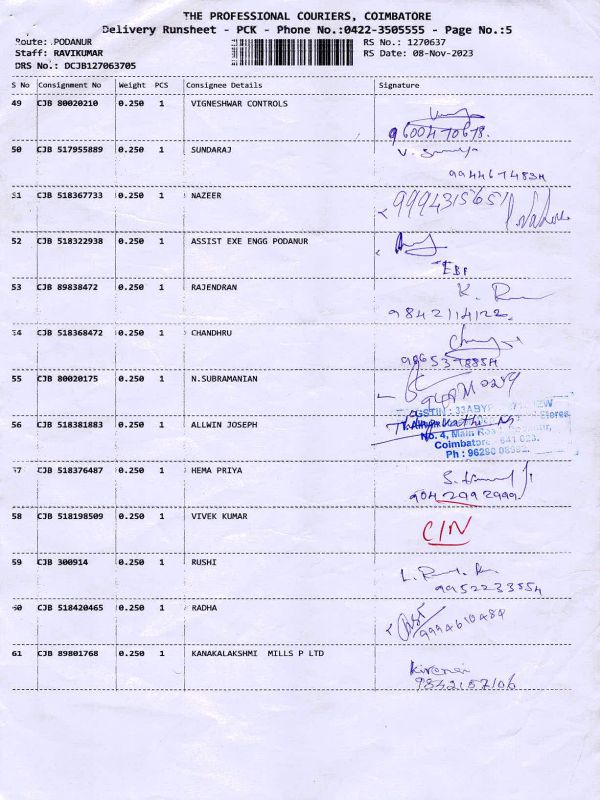 THE PROFESSIONAL COURIERS, COIMBATORE
Delivery Runsheet - PCK - Phone No.:0422-3505555 - Page No.:5
Route: PODANUR
RS No.: 1270637
Staff: RAVIKUMAR
RS Date: 08-Nov-2023
DRS No.: DCJB127063705
S No Consignment No Weight PCS Consignee Details Signature
49 CJB 80020210 0.250 1 VIGNESHWAR CONTROLS
9600470678.
50 CJB 517955889 0.250 1 SUNDARAJ
51 CJB 518367733 0.250 1 NAZEER
9994315651
52 CJB 518322938 0.250 1 ASSIST EXE ENGG PODANUR
53 CJB 89838472 0.250 1 RAJENDRAN
9842114122.
54 CJB 518368472 0.250 1 CHANDHRU
55 CJB 80020175 0.250 1 N.SUBRAMANIAN
56 CJB 518381883 0.250 1 ALLWIN JOSEPH
No. 4, Main
Coimbatore - 641 023.
57 CJB 518376487 0.250 1 HEMA PRIYA
9042992999
58 CJB 518198509 0.250 1 VIVEK KUMAR
C/N
59 CJB 300914 0.250 1 RUSHI
60 CJB 518420465 0.250 1 RADHA
61 CJB 89801768 0.250 1 KANAKALAKSHMI MILLS P LTD
9842157106